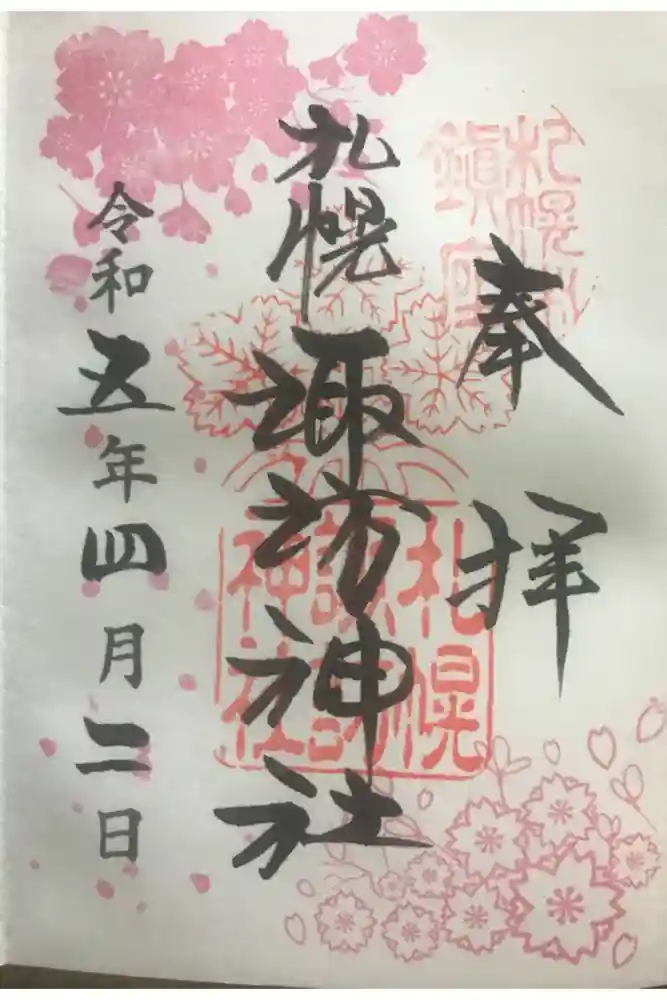 奉拝
札幌諏訪神社
令和五年四月二日
札幌
鎮
札幌
諏訪
神社